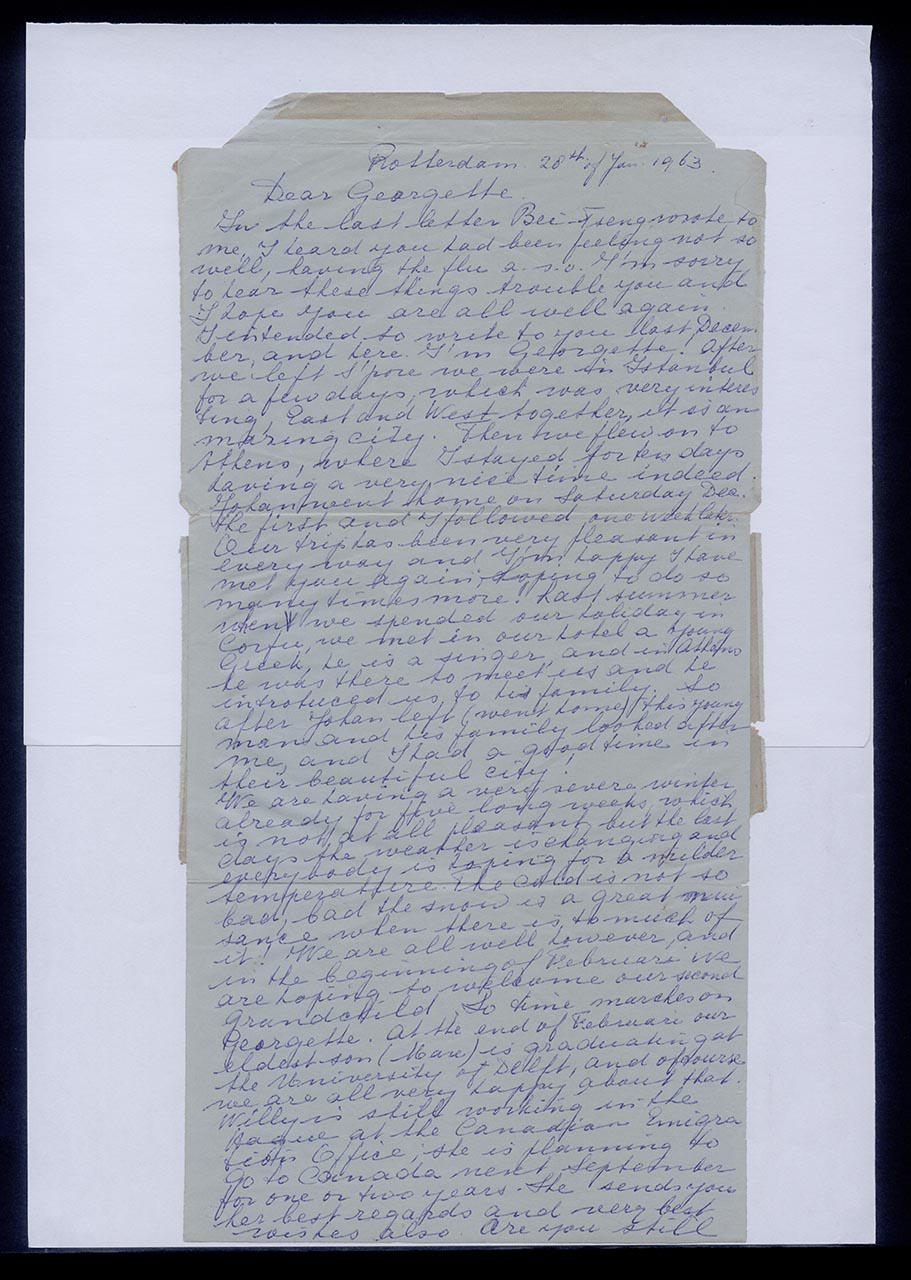 Rotterdam 28th of Jan. 1963
Dear Georgette
In the last letter Bee-Tseng wrote to
me, I heard you had been feeling not so
well, having the flu a.s.o. I'm sorry
to hear these things trouble you and
I hope you are all well again.
I intended to write to you last Decem-
ber, and here I'm Georgette. After
we left S'pore we were in Istanbul
for a few days, which was very interes
ting, East and West together, it is an
mazing city. Then we flew on to
Athens, where I stayed for ten days
having a very nice time indeed.
Johan went home on Saturday Dec.
the first and I followed one week later.
Our trip has been very pleasant in
every way and I'm happy I have
met you again, hoping to do so
many times more! Last summer
when we spended our holiday in
Corfu, we met in our hotel a young
Greek, he is a singer, and in Athens
he was there to meet us and he
introduced us to his family. So
after Johan left (went home) this young
man and his family looked after
me, and I had a good time in
their beautiful city.
We are having a very severe winter
already for five long weeks, which
is not at all pleasant, but the last
days the weather is changing and
everybody is hoping for a milder
temperature. The cold is not so
bad, bad the snow is a great nui
sance when there is to much of
it! We are all well however, and
in the beginning of Februari we
are hoping to welcome our second
grandchild. So time marches on
Georgette. At the end of Februari our
eldest son (Max) is graduating at
the University of Delft, and of course
we are all very happy about that.
Willy is still working in the
Hague at the Canadian Emigra
tion Office, she is planning to
go to Canada next September
for one or two years. She sends you
her best regards and very best
wishes also. Are you still